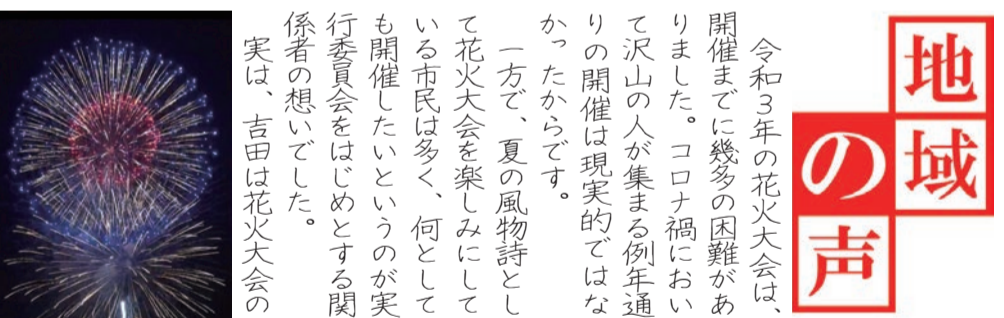 地域の声
令和3年の花火大会は、
開催までに幾多の困難があ
りました。コロナ禍におい
て沢山の人が集まる例年通
りの開催は現実的ではな
かったからです。
一方で、夏の風物詩とし
て花火大会を楽しみにして
いる市民は多く、何として
も開催したいというのが実
行委員会をはじめとする関
係者の想いでした。
実は、吉田は花火大会の